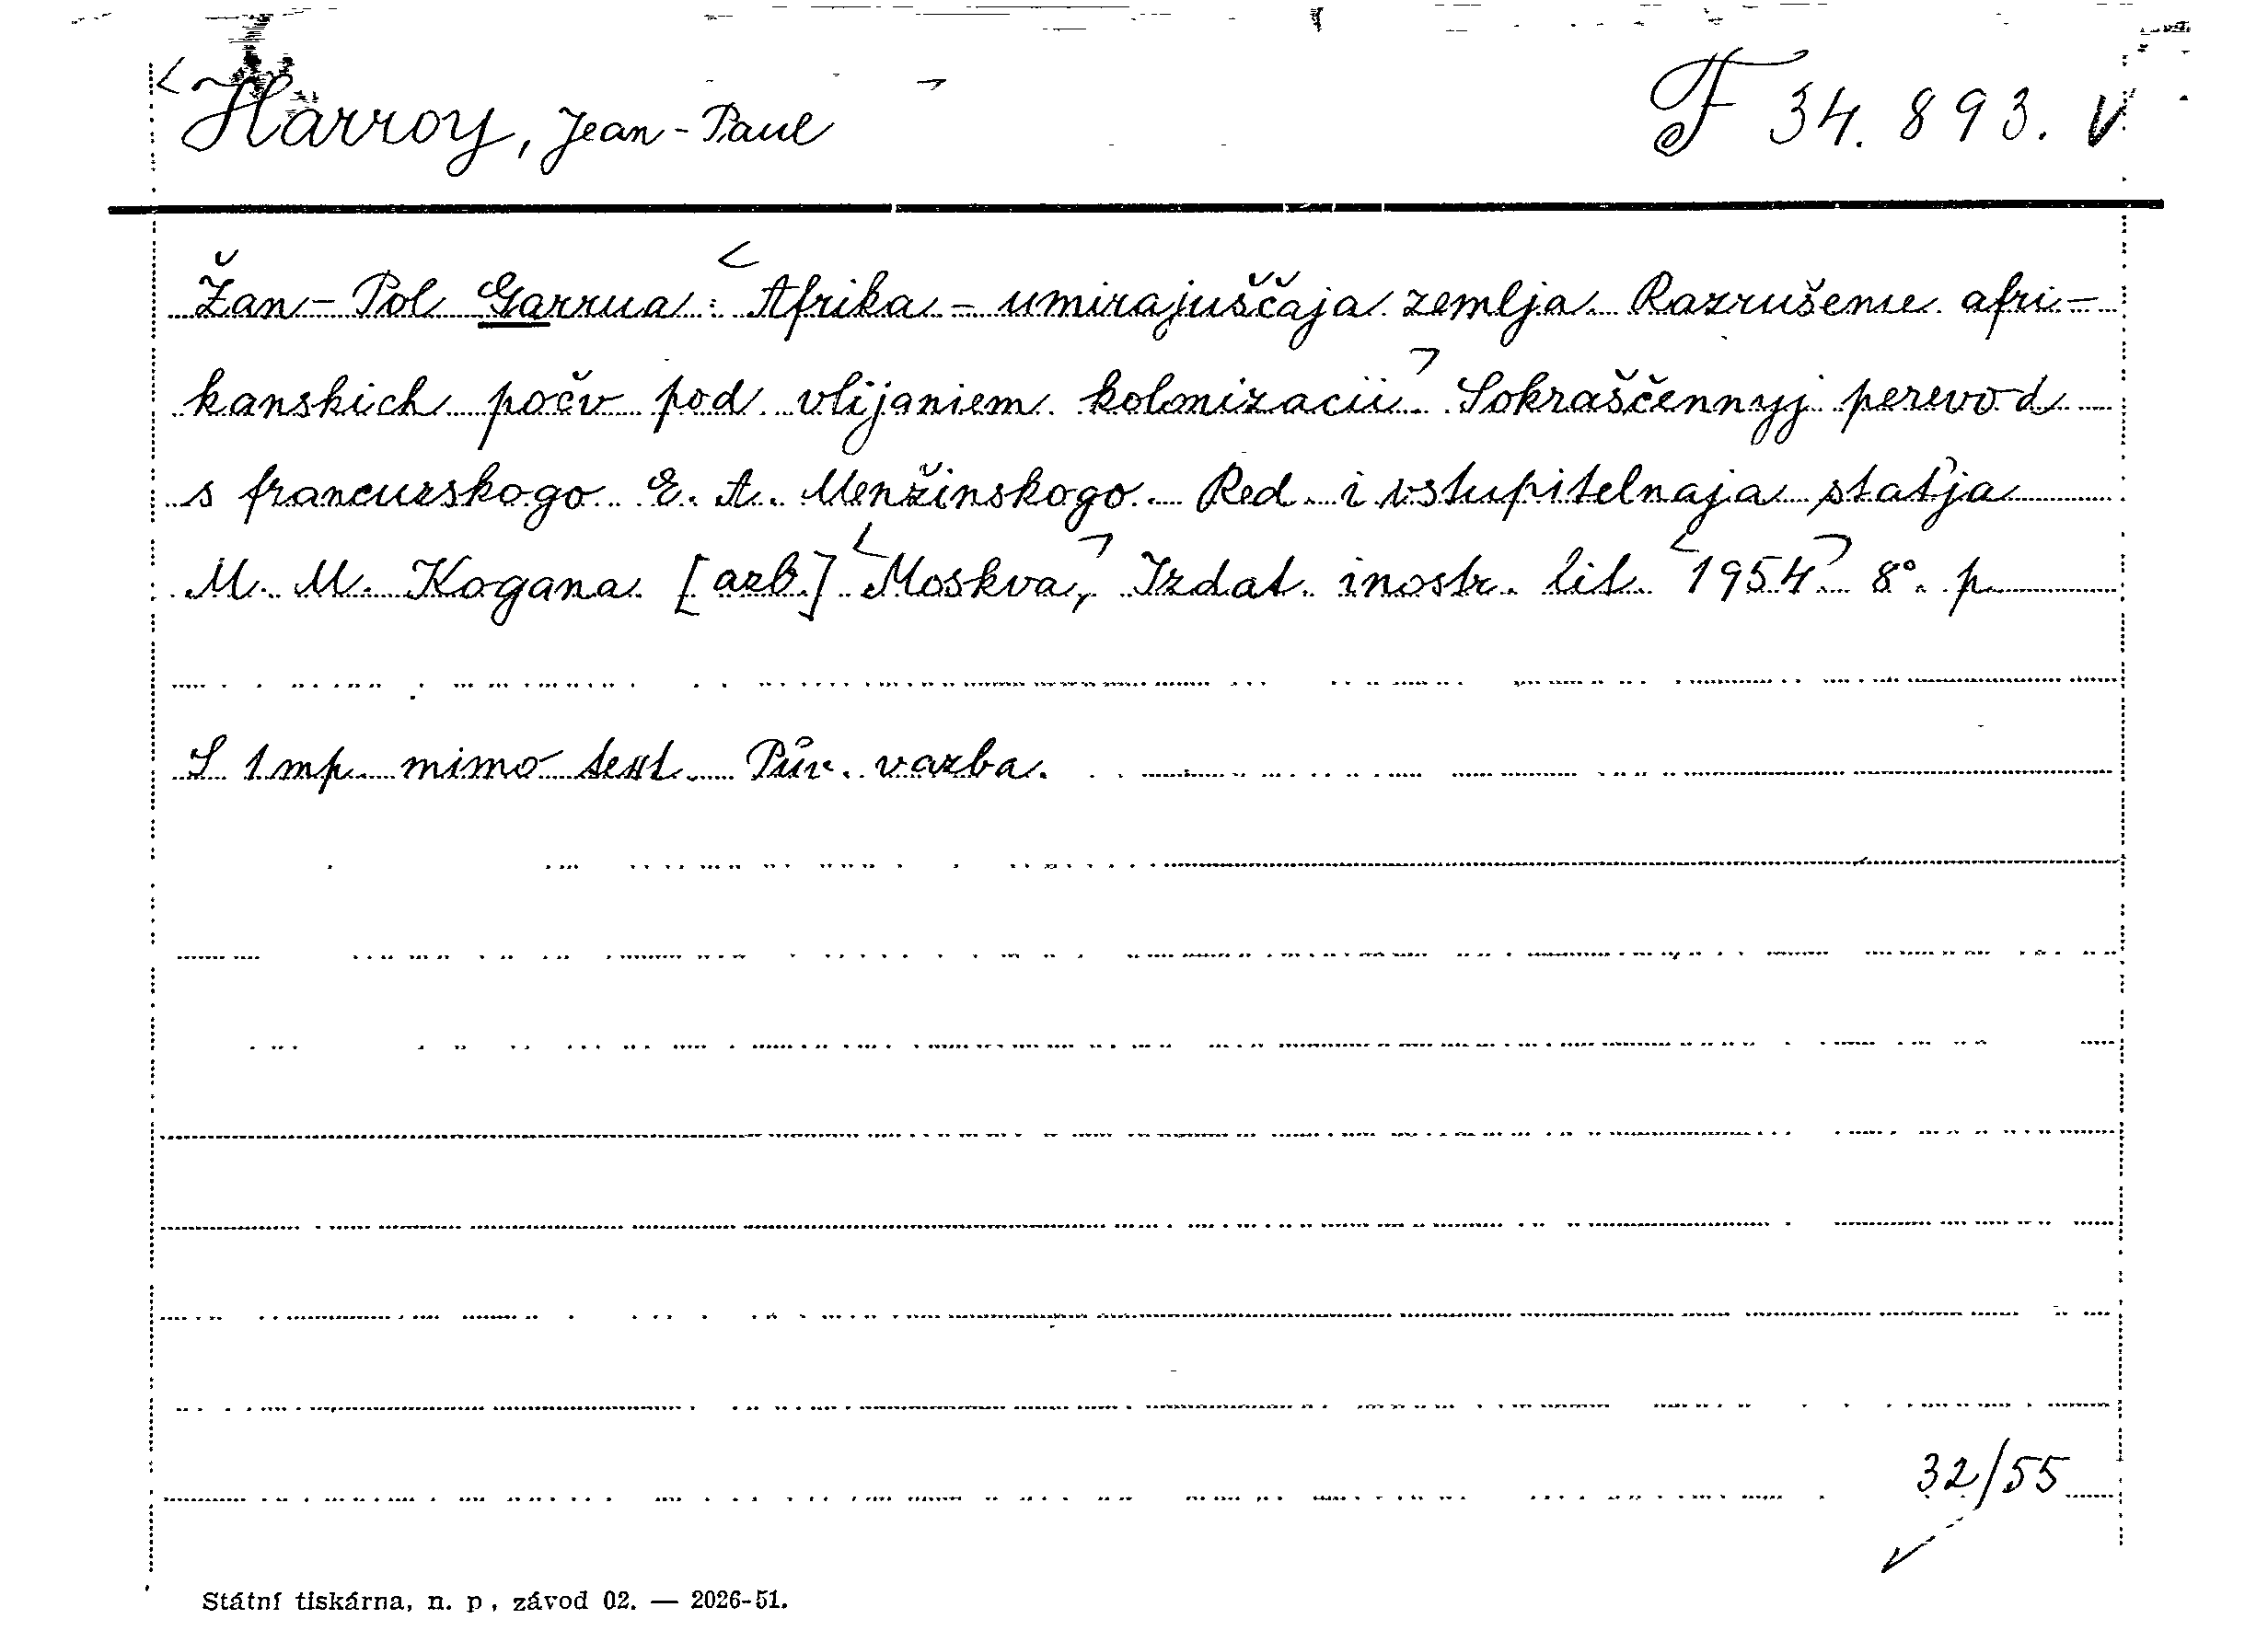 Harroy, Jean-Paul F 34.893. V
Žan-Pol Garrua: Afrika - umirajuščaja zemlja. Razrušenie afri-
kanskich počv pod vlijaniem kolonizacii. Sokraščennyj perevod
s francuzskogo E. A. Menžinskogo. Red. i vstupitelnaja staťja
M. M. Kogana. [azb.] Moskva, Izdat. inostr. lit. 1954. 8°. p.
S 1 mp. mimo text. Pův. vazba.
32/55
Státní tiskárna, n. p., závod 02. — 2026-51.